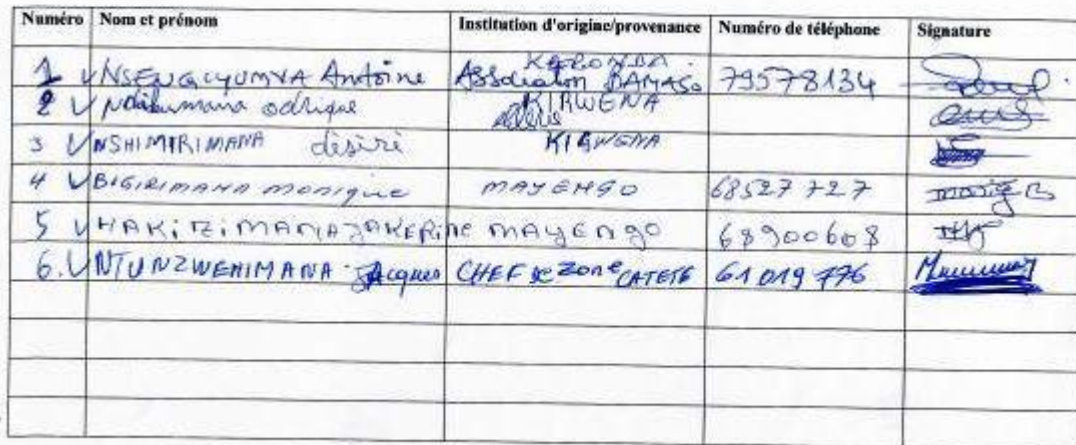 Numéro Nom et prénom Institution d'origine/provenance Numéro de téléphone Signature
1 NSENGIYUMVA Antoine Association BAMASO KARONDA 79578134
2 Ndikumana odrique KIRWENA
3 NSHIMIRIMANA désiré KIGWENA
4 BIGIRIMANA monique MAYENGO 68527727
5 HAKIZIMANA JAKERINE MAYENGO 68900608
6. NTUNZWENIMANA Jacques CHEF de Zone 61019776